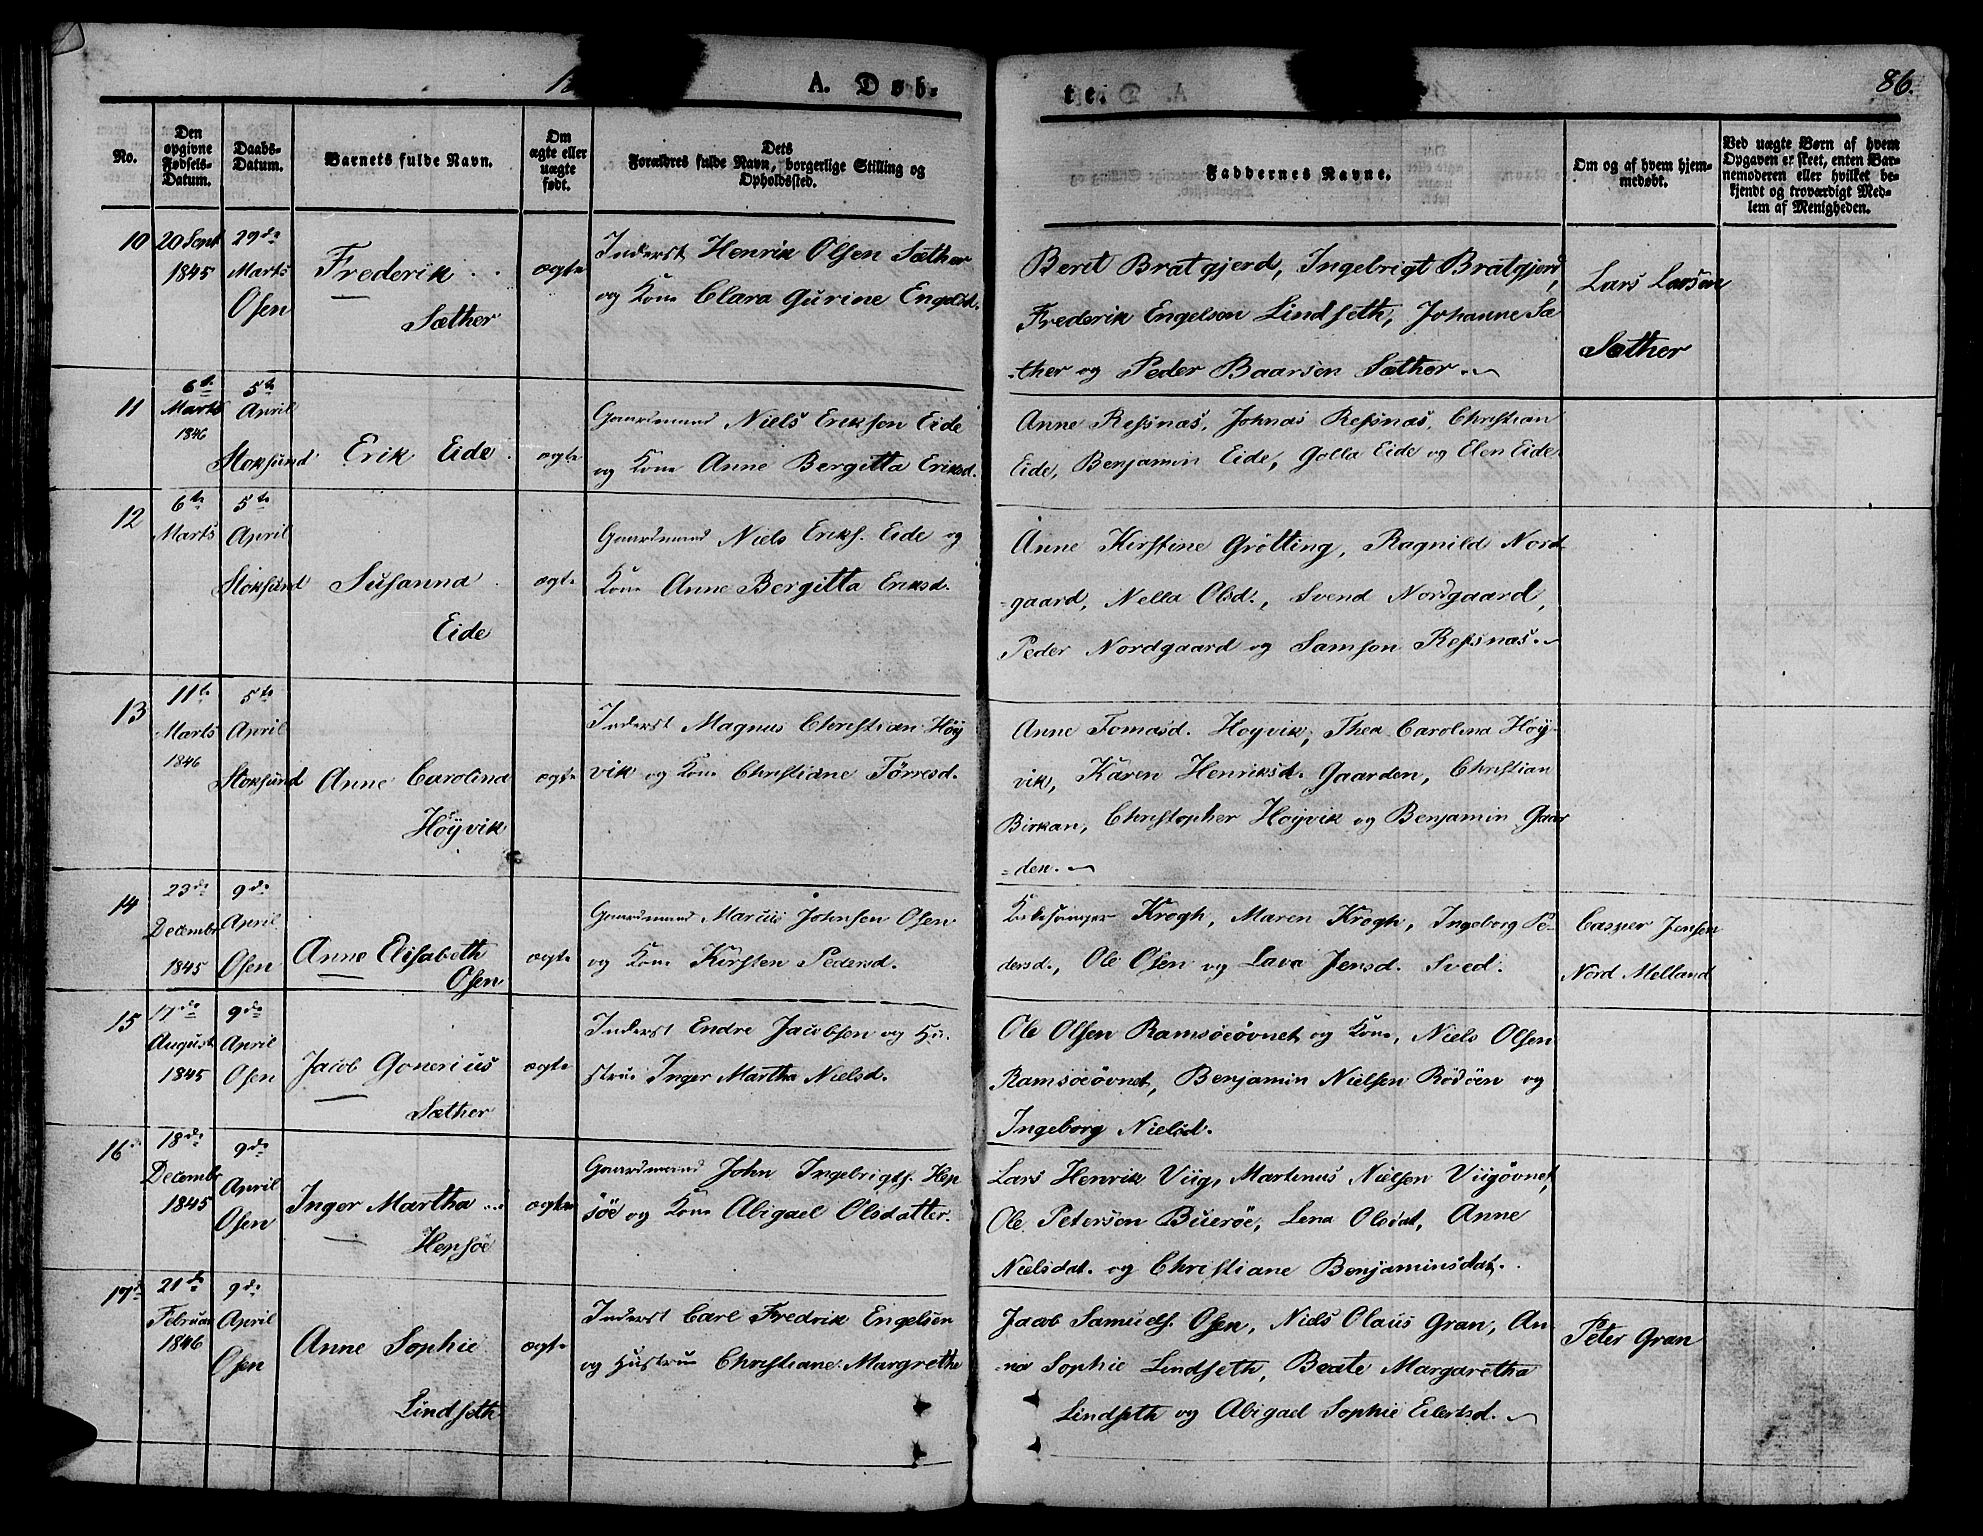 A. Døb-
te.
86.
No.
Den opgivne Fødsels-Datum.
Daabs-Datum.
Barnets fulde Navn.
Om ægte eller uægte født.
Dets Forældres fulde Navn, borgerlige Stilling og Opholdssted.
Faddernes Navne.
Om og af hvem hjem-medøbt.
Ved uægte Børn af hvem Opgaven er skeet, enten Bar-nemoderen eller hvilket be-kjendt og troværdigt Med-lem af Menigheden.
10
20 Sept
1845
29de
Marts
Osen
Frederik
Sæther
ægte
Inderst Henrik Olsen Sæther
og Kone Clara Gurine Engelsd.
Beret Bratgjerd, Ingebrigt Bratgjerd,
Frederik Engelsen Lindseth, Johanne Sæ
-ther og Peder Baarsen Sæther.
Lars Larsen
Sæther
11
6te
Marts
1846
5te
April
Stoksund
Erik Eide
ægte
Gaardmand Niels Eriksen Eide
og Kone Anne Bergitta Eriksd.
Anne Refsnæs, Johnas Refsnæs, Christian
Eide, Benjamin Eide, Golla Eide og Elen Eide
12
6te
Marts
5te
April
Stoksund
Susanna
Eide
ægte
Gaardmand Niels Eriks. Eide og
Kone Anne Bergitta Eriksd.
Anne Kirstine Grötting, Ragnild Nord
-gaard, Nella Olsd., Svend Nordgaard,
Peder Nordgaard og Samson Refsnæs.
13
11te
Marts
1846
5te
April
Stoksund
Anne Carolina
Höyvik
ægte
Inderst Magnus Christian Höy
vik og Kone Christiane Törresd.
Anne Tomasd. Hoyvik, Thea Carolina Höy-
vik, Karen Henriksd. Gaarden, Christian
Birkan, Christopher Hoyvik og Benjamin Gaar
-den.
14
23de
Decembr
1845
9de
April
Osen
Anne Elisabeth
Osen
ægte
Gaardmand Marcus Johnsen Osen
og Kone Kirsten Pedersd.
Kirkesanger Krogh, Maren Krogh, Ingeborg Pe-
dersd., Ole Osen og Lava Jensd. Sved.
Casper Jensen
Nord Melland
15
17de
August
1845
9de
April
Osen
Jacob Gonerius
Sæther
ægte
Inderst Endre Jacobsen og Hu-
strue Inger Martha Nielsd.
Ole Olsen Ramsöeövnet og Kone, Niels Olsen
Ramsöeövnet, Benjamin Nielsen Rödöen og
Ingeborg Nielsd.
16
18de
Decembr
1845
9de
April
Osen
Inger Martha
Hepsöe
ægte
Gaardmand John Ingebrigts. Hep
söe og Kone Abigael Olsdatter.
Lars Henrik Viig, Martenus Nielsen Viigövnet,
Ole Petersen Bueröe, Lena Olsdat, Anne
Nielsdat. og Christiane Benjaminsdat.
17
21de
Februar
1846
9de
April
Osen
Anne Sophie
Lindseth
ægte
Inderst Carl Fredrik Engelsen
og Hustrue Christiane Margrethe
Jacob Samuels. Osen, Niels Olaus Gran, An
-na Sophie Lindseth, Beate Margaretha
Lindseth og Abigael Sophie Eilertsd.
Peter Gran